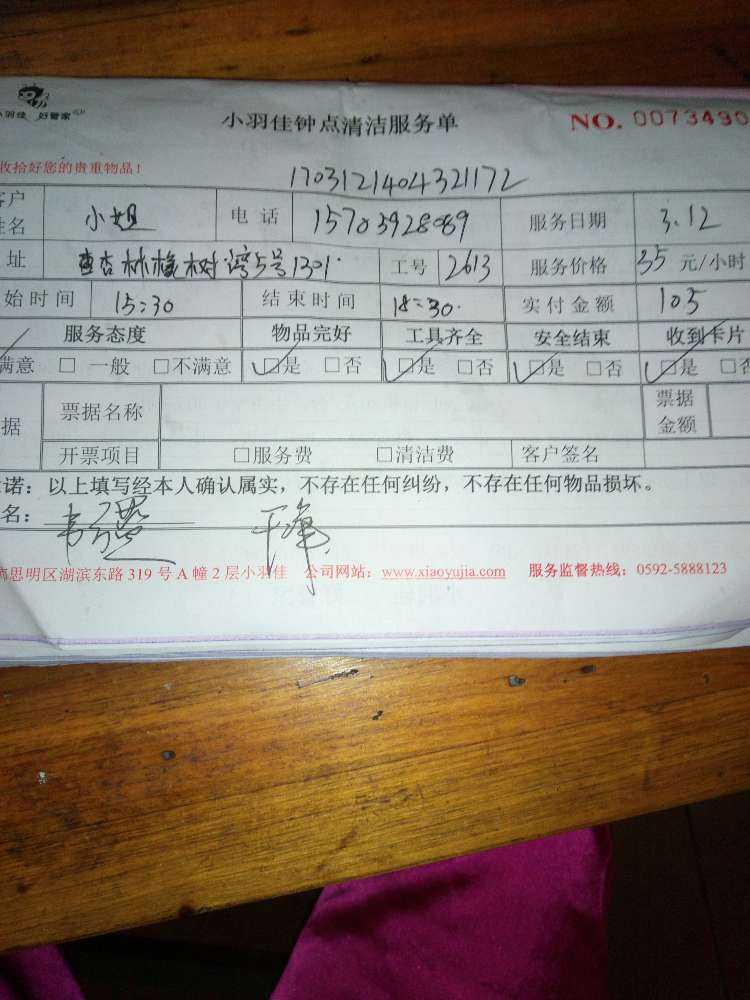 小羽佳 好管家
小羽佳钟点清洁服务单 NO. 0073490
收拾好您的贵重物品！
1703121404321172
客户姓名 小姐 电话 15703928089 服务日期 3.12
址 杏林橡树湾5号1301. 工号 2613 服务价格 35 元/小时
始时间 15:30 结束时间 18:30. 实付金额 105
服务态度 物品完好 工具齐全 安全结束 收到卡片
满意 □ 一般 □不满意 □是 □否 □是 □否 □是 □否 □是 □否
据 票据名称 票据金额
开票项目 □服务费 □清洁费 客户签名
诺：以上填写经本人确认属实，不存在任何纠纷，不存在任何物品损坏。
名：
思明区湖滨东路 319 号 A 幢 2 层小羽佳 公司网站：www.xiaoyujia.com 服务监督热线：0592-5888123